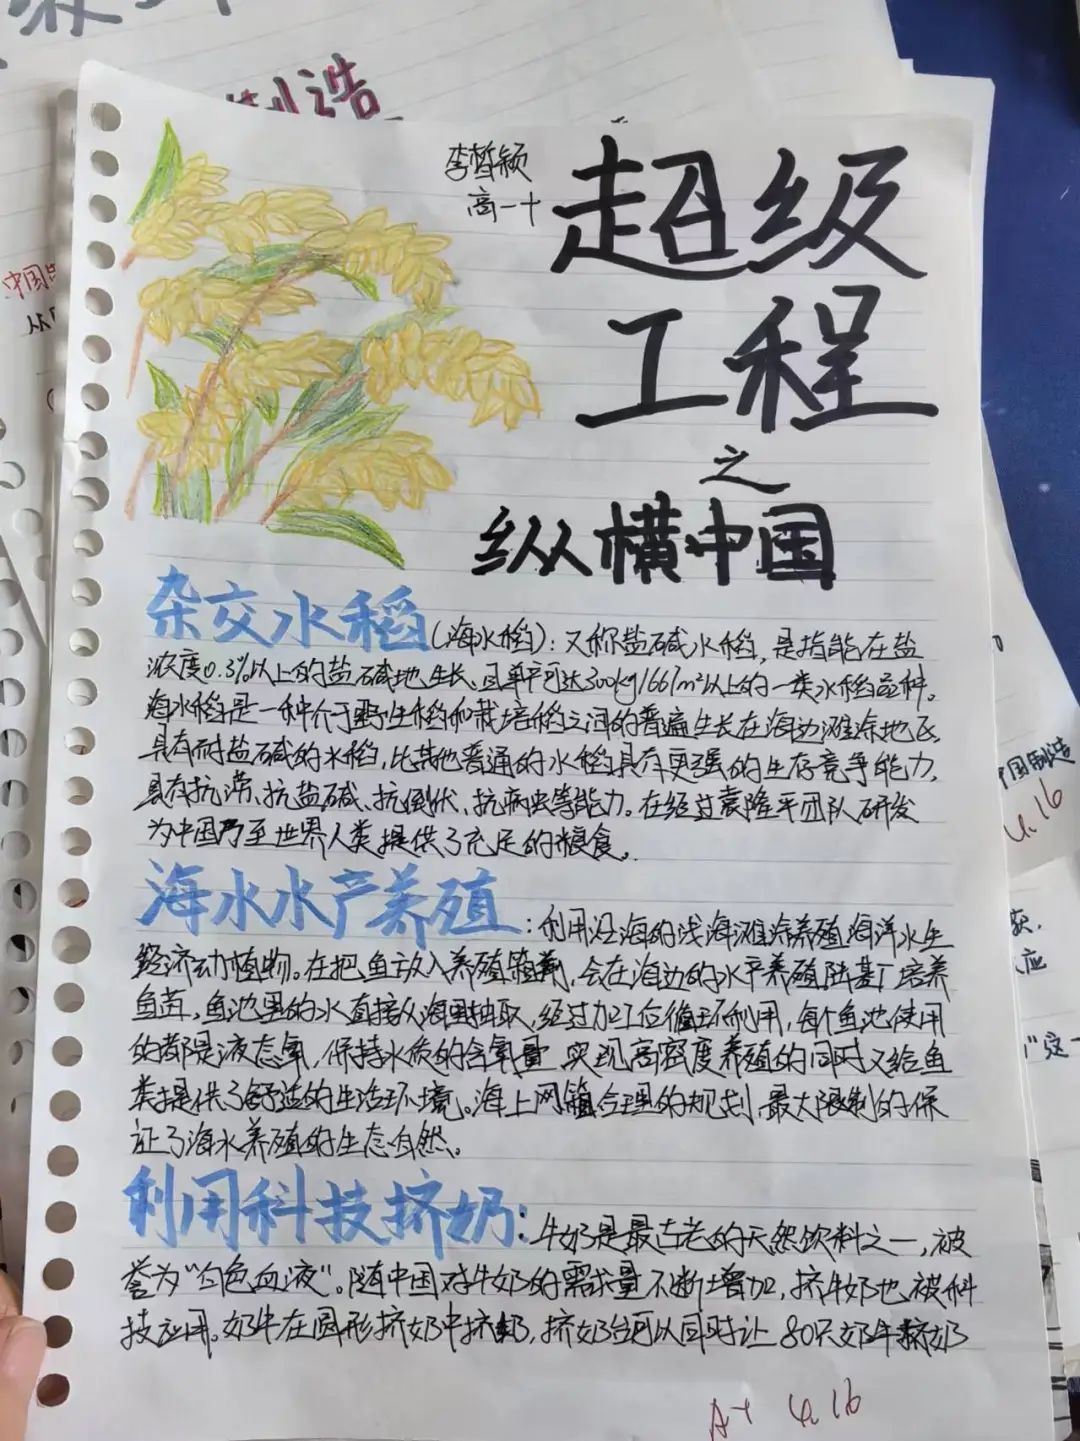 制造
李皙颖
高一十
超级
工程
之
纵横中国
杂交水稻(海水稻)：又称盐碱水稻，是指能在盐
浓度0.3%以上的盐碱地生长、且单产可达300kg/667m²以上的一类水稻品种。
海水稻是一种介于野生稻和栽培稻之间的普遍生长在海边滩涂地区
具有耐盐碱的水稻，比其他普通的水稻具有更强的生存竞争能力，
具有抗涝、抗盐碱、抗倒伏、抗病虫等能力。在经过袁隆平团队研发
为中国乃至世界人类提供了充足的粮食。
海水水产养殖：利用沿海的浅海滩涂养殖海洋水生
经济动植物。在把鱼放入养殖箱前，会在海边的水产养殖陆基厂培养
鱼苗，鱼池里的水直接从海里抽取，经过加工位循环利用，每个鱼池使用
的都是液态氧，保持水质的含氧量，实现高密度养殖的同时又给鱼
类提供了舒适的生活环境。海上网箱合理的规划，最大限制的保
证了海水养殖的生态自然。
利用科技挤奶：牛奶是最古老的天然饮料之一，被
誉为“白色血液”。随中国对牛奶的需求量不断增加，挤牛奶也被科
技应用。奶牛在圆形挤奶中挤奶，挤奶台可以同时让80只奶牛挤奶
A+ 4.16
中国
从
中国制造
4.16
应
"这一